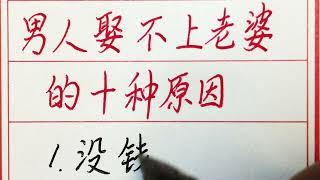 男人娶不上老婆
的十种原因
1.没钱